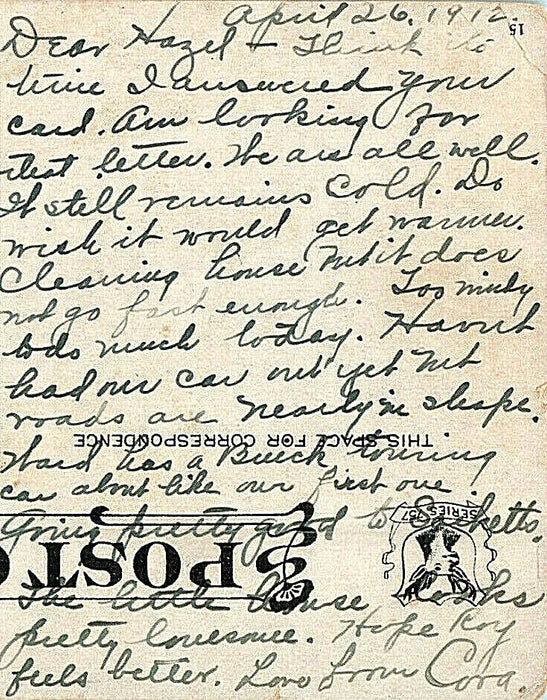 April 26, 1912.
15
Dear Hazel - Think its
time I answered your
card. Am looking for
that letter. We are all well.
It still remains cold. Do
wish it would get warmer.
Cleaning house but it does
not go fast enough. Too windy
to do much today. Havent
had our car out yet but
roads are nearly in shape.
THIS SPACE FOR CORRESPONDENCE
Ward has a Buick touring
car about like our first one
Going pretty good to
SERIES 757
POSTC
The little house looks
pretty lonesome. Hope Roy
feels better. Love from Cora.